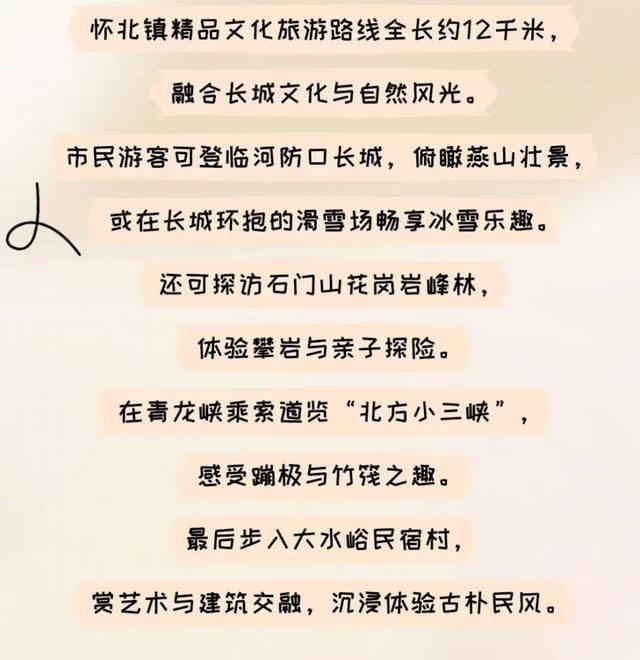 怀北镇精品文化旅游路线全长约12千米，
融合长城文化与自然风光。
市民游客可登临河防口长城，俯瞰燕山壮景，
或在长城环抱的滑雪场畅享冰雪乐趣。
还可探访石门山花岗岩峰林，
体验攀岩与亲子探险。
在青龙峡乘索道览“北方小三峡”，
感受蹦极与竹筏之趣。
最后步入大水峪民宿村，
赏艺术与建筑交融，沉浸体验古朴民风。